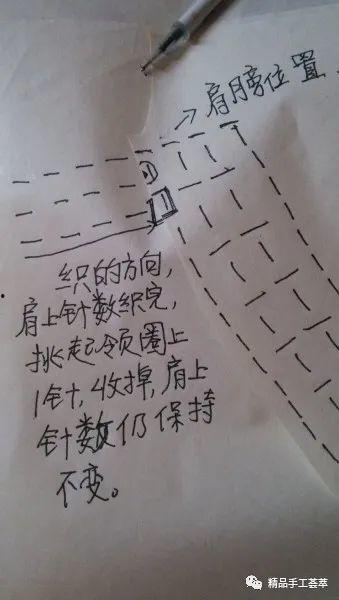 肩膀位置
织的方向，
肩上针数织完，
挑起领圈上
1针，收掉，肩上
针数仍保持
不变。
精品手工荟萃